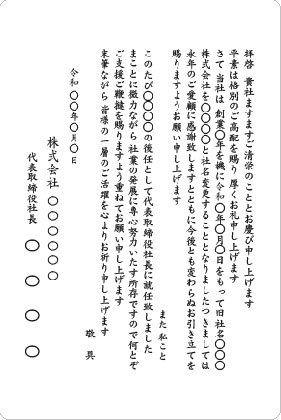 拝啓 貴社ますますご清栄のこととお慶び申し上げます
平素は格別のご高配を賜り 厚くお礼申し上げます
さて 当社は 創業〇年を機に令和〇年〇月〇日をもって旧社名〇〇
株式会社を〇〇〇〇と社名変更することとなりました つきましては
永年のご愛顧に感謝致しますとともに今後とも変わらぬお引き立てを
賜りますようお願い申し上げます
また 私こと
このたび〇〇〇〇の後任として代表取締役社長に就任致しました
まことに微力ながら 社業の発展に専心努力いたす所存ですので何とぞ
ご支援ご鞭撻を賜りますよう重ねてお願い申し上げます
末筆ながら 皆様の一層のご活躍を心よりお祈り申し上げます
敬 具
令和〇〇年〇月〇日
株式会社 〇〇〇〇〇〇
代表取締役社長 〇 〇 〇 〇